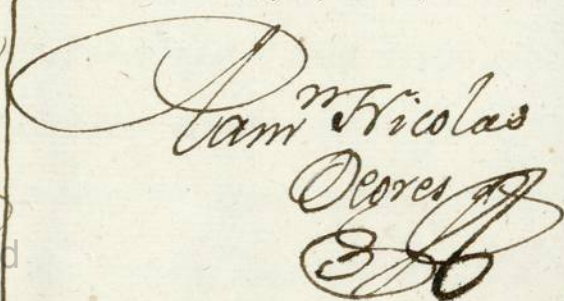 Ram.n Nicolas
Deores